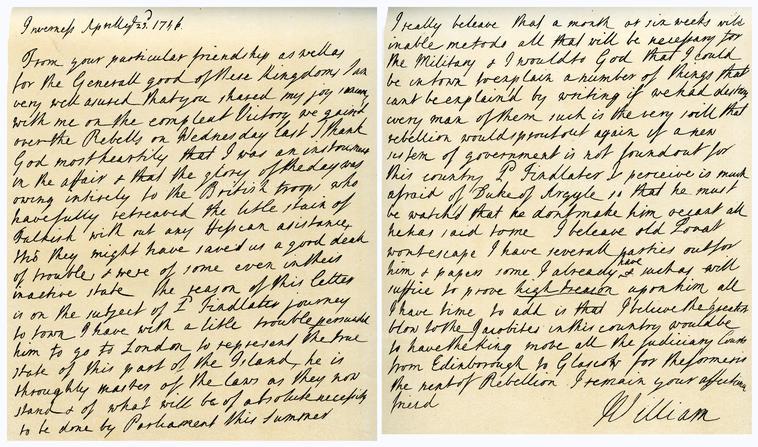 Inverness Aprill ye 23d 1746.
From your particular friendship as well as
for the Generall good of these Kingdoms I am
very well asured that you shared my joy
with me on the compleat Victory we gain'd
over the Rebells on Wednesday last I thank
God most heartily that I was an instrument
in the affair & that the glory of the day was
owing intirely to the British troops who
have fully retreaved the litle stain of
Falkirk with out any Hessian asistance
tho they might have saved us a good deal
of trouble & were of some even in their
inactive state the reason of this letter
is on the subject of Ld Findlater journey
to town I have with a litle trouble persuaded
him to go to London to represent the true
state of this part of the Island, he is
throughly master of the laws as they now
stand & of what will be of absolute necessity
to be done by Parliament this Summer
I really beleave that a month or six weeks will
inable me to do all that will be necessary for
the Military & I would to God that I could
be in town to explain a number of things that
cant be explain'd by writing if we had destroy
every man of them such is the very soill that
rebellion would sprout out again if a new
sistem of government is not found out for
this country Ld Findlater I perceive is much
afraid of Duke of Argyle so that he must
be watched that he dont make him recant all
he has said to me I beleave old Lovat
wont escape I have severall parties out for
him & papers some I already have & such as will
suffice to prove high treason upon him all
I have time to add is that I believe the greatest
blow to the Jacobites in this country would be
to have the King move all the judiciary Courts
from Edinborough to Glascow for the former is
the nest of Rebellion I remain your affectionate
friend
William